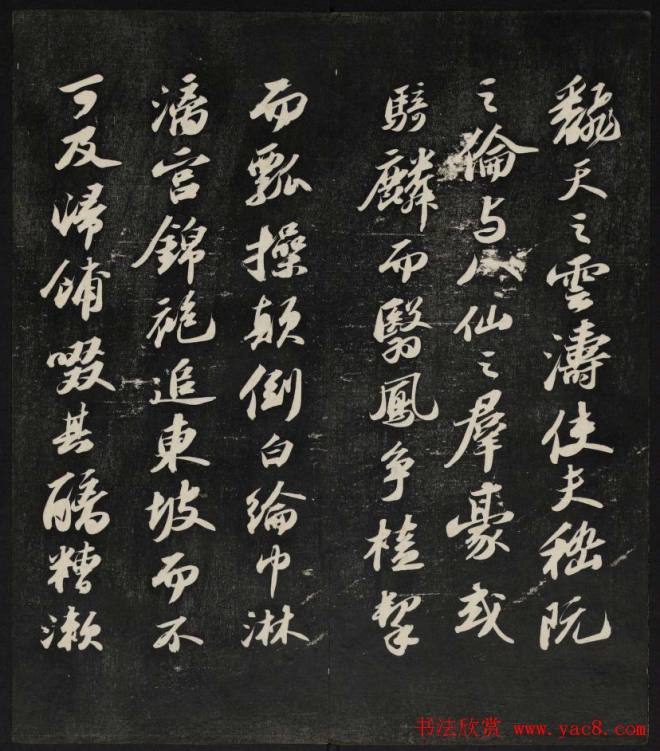 飜天之雲濤使夫嵇阮
之倫与八仙之羣豪或
騎麟而翳鳳争榼挈
而瓢操顛倒白綸巾淋
漓宮錦袍追東坡而不
可及歸餔啜其醨糟漱
书法欣赏 www.yac8.com